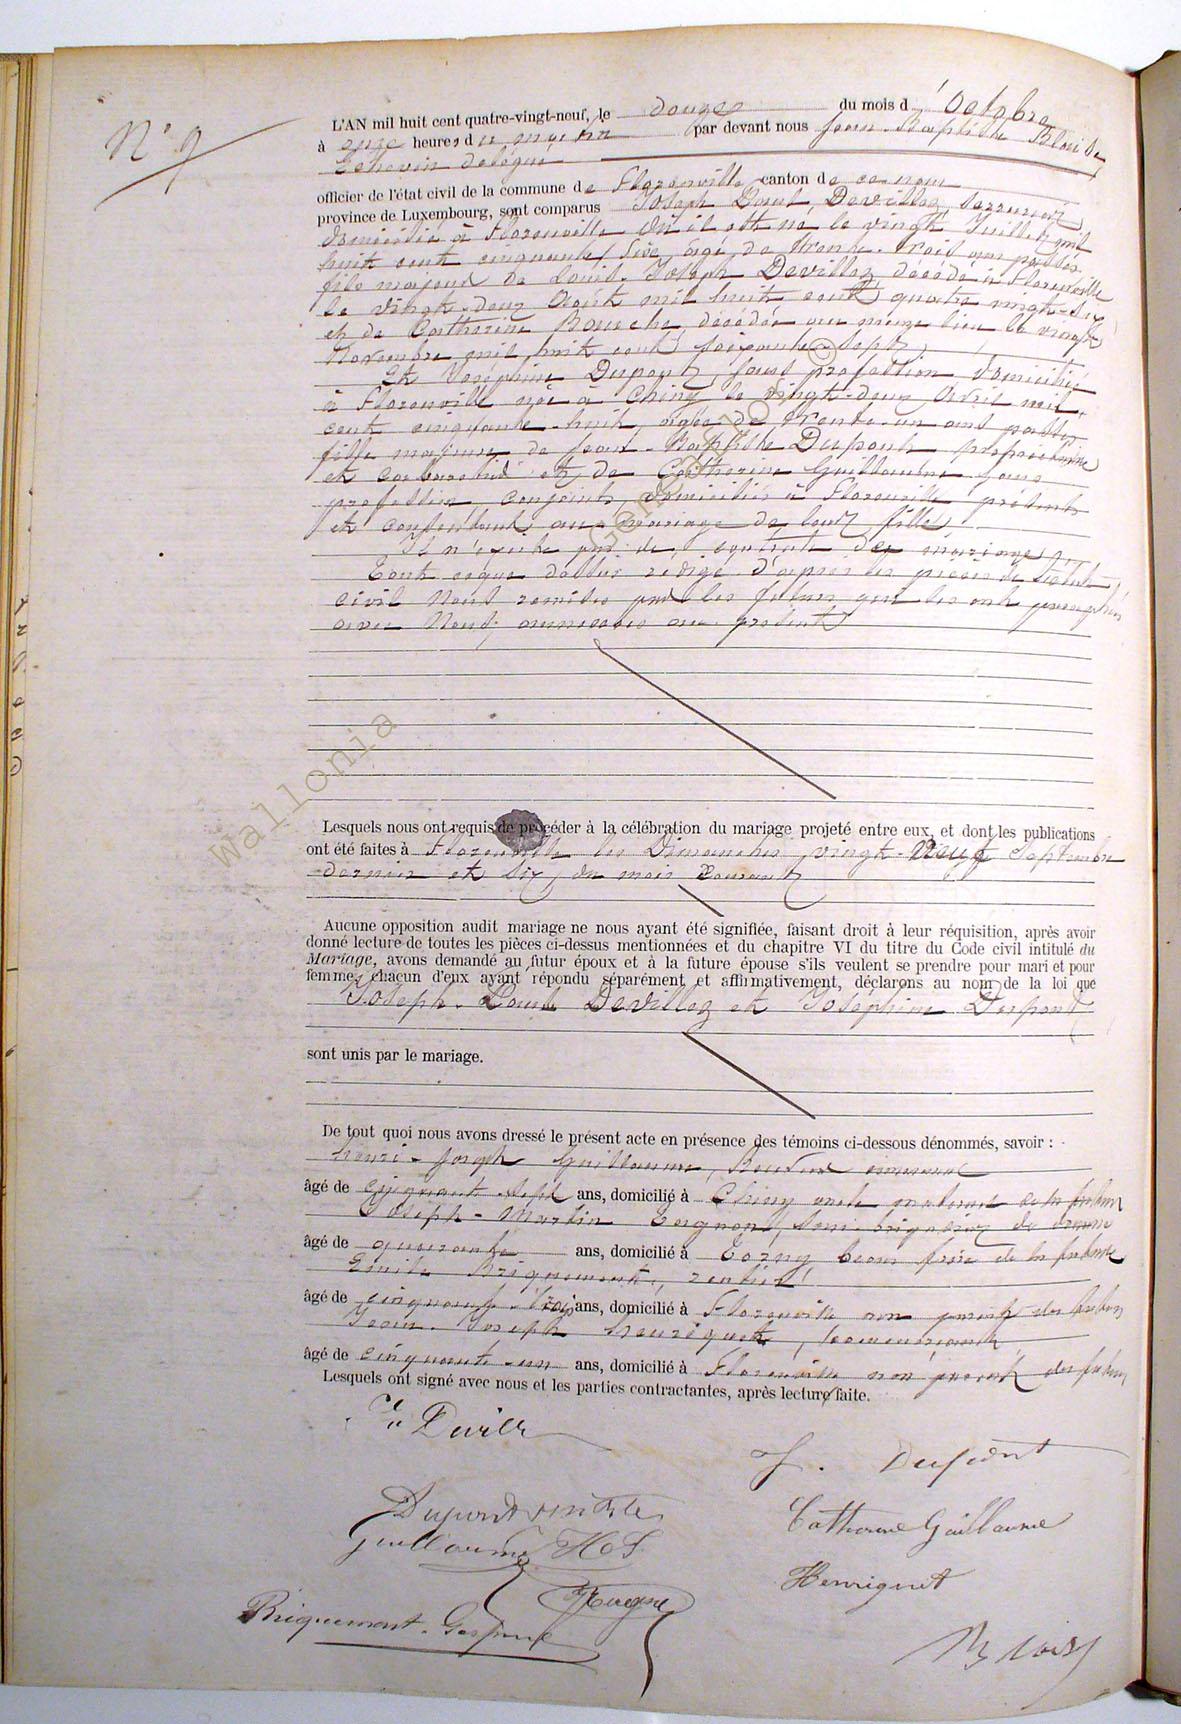 N° 9
L'AN mil huit cent quatre-vingt-neuf, le douze du mois d'Octobre
à onze heures du matin par devant nous Jean-Baptiste
Echevin délégué
officier de l'état civil de la commune de Florenville canton de ce nom
province de Luxembourg, sont comparus Joseph Louis Devillez, serrurier
domicilié à Florenville où il est né le vingt Juillet mil
huit cent cinquante six âgé de trente-trois ans passés
fils majeur de Louis-Joseph Devillez décédé à Florenville
le vingt-deux Août mil huit cent quatre vingt-six
et de Catherine décédée au même lieu le vingt
Novembre mil huit cent soixante-sept
Et Joséphine Dupont, sans profession domiciliée
à Florenville née à Chiny le vingt-deux Avril mil
cent cinquante-huit, âgée de trente-un ans passés
fille majeure de Jean-Baptiste Dupont
et et de Catherine Guillaume sans
profession, conjoints domiciliés à Florenville présents
et consentant au mariage de leur fille
Il n'existe pas de contrat de mariage
Tout ce que dessus rédigé d'après les pièces de l'état
civil Nous remises par les futurs qui les ont paraphées
avec Nous, annexées au présent
Lesquels nous ont requis de procéder à la célébration du mariage projeté entre eux, et dont les publications
ont été faites à Florenville les Dimanches vingt-Neuf Septembre
dernier et six du mois courant
Aucune opposition audit mariage ne nous ayant été signifiée, faisant droit à leur réquisition, après avoir
donné lecture de toutes les pièces ci-dessus mentionnées et du chapitre VI du titre du Code civil intitulé du
Mariage, avons demandé au futur époux et à la future épouse s'ils veulent se prendre pour mari et pour
femme, chacun d'eux ayant répondu séparément et affirmativement, déclarons au nom de la loi que
Joseph-Louis Devillez et Joséphine Dupont
sont unis par le mariage.
De tout quoi nous avons dressé le présent acte en présence des témoins ci-dessous dénommés, savoir :
Henri-Joseph Guillaume, communal
âgé de cinquante-sept ans, domicilié à Chiny oncle maternel de la future
Joseph-Martin sous brigadier de douane
âgé de quarante ans, domicilié à Torny beau frère de la future
Emile Briquemont, rentier
âgé de cinquante-trois ans, domicilié à Florenville non parent des futurs
Jean-Joseph Henriquet,
âgé de cinquante-un ans, domicilié à Florenville non parent des futurs
Lesquels ont signé avec nous et les parties contractantes, après lecture faite.
J. Dupont
Dupont
Catherine Guillaume
Guillaume
Henriquet
Briquemont
Wallonia
Geneanet ©